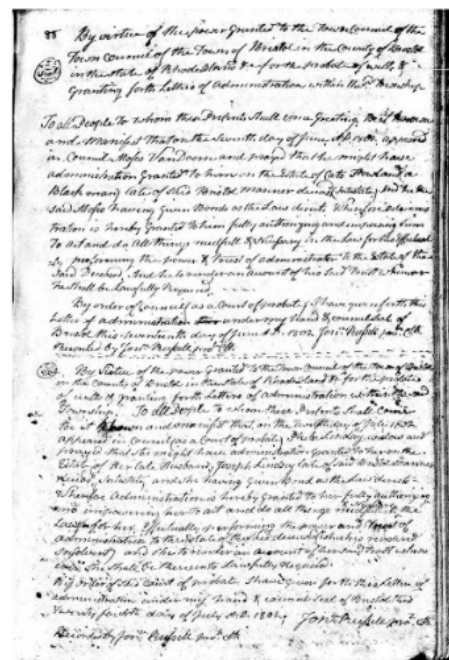 88 By virtue of the power Granted to the Town Council of the
Town Council of the Town of Bristol in the County of Bristol
in the state of Rhode Island &c for the probate of wills &
Granting forth Letters of Administration within the sd Township
To all People to whom these Presents Shall come Greeting be it known
and Manifest that on the Seventh day of June AD 1802 appeared
in Council Moses VanDoorn and prayed that he might have
administration Granted to him on the Estate of Cato
Black man late of said Bristol Manner deceasd Intestate, And he the
said Moses having Given Bonds as the Law directs. Wherefore adminis
tration is hereby Granted to him fully authorizing and impowering him
To act and do All things needfull & Necessary in the Law for the Effectual
ly performing the power & trust of administrator to the Estate of the
said Deceased. And he to render an account of his said Trust when
he shall be Lawfully Required.
By order of Council as a Court of probate, I have given forth this
Letter of administration under my Hand & Council Seal of
Bristol this Seventh day of June A.D. 1802 Jonn Russell pro. Clk
Recorded by Jonn Russell pro. Clk
By Virtue of the power Granted to the Town Council of the Town of Bristol
in the County of Bristol in the state of Rhode Island &c for the probate
of wills & granting forth Letters of Administration within the said
Township. To all People to whom these Presents Shall Come
be it known and manifest that on the day of July 1802
appeared in Council (as a Court of probate) Lindsey widow and
prayed that she might have administration Granted to her on the
Estate of her late Husband, Joseph Lindsey late of said Bristol
decead Intestate, and she having Given Bond as the Law directs
Therefore Administration is hereby Granted to her fully authorizing
and impowering her to act and do all things needfull in the
Law for her Effectually performing the power and Trust of
administration to the Estate of the sd deceased (which is rendered
insolvent) and she to render an account of her said trust when
she shall be thereunto Lawfully Required.
By order of the said Court of probate I have given forth this Letter of
administration under my hand & council Seal of Bristol this
Twenty fourth day of July A.D. 1802. Jonn Russell pro. Clk
Recorded by Jonn Russell pro. Clk